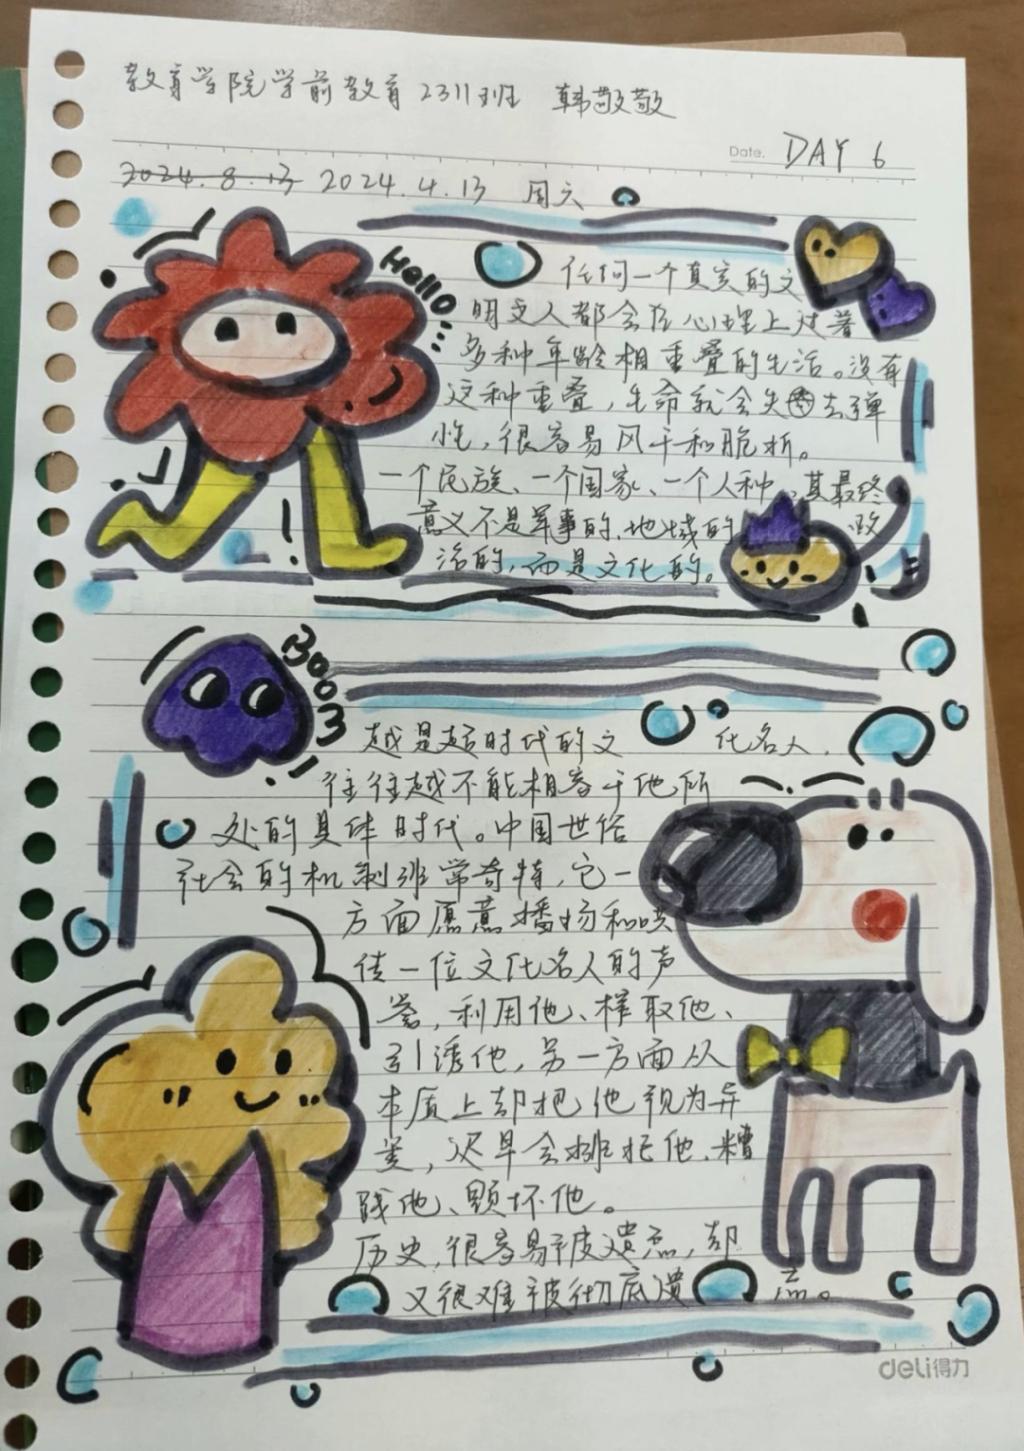 教育学院学前教育2311班 韩敬敬
Date. DAY 6
2024.8.13 2024.4.13 周六
Hello...
任何一个真实的文
明交人都会在心理上过着
多种年龄相重叠的生活。没有
这种重叠，生命就会失去弹
性，很容易风干和脆折。
一个民族、一个国家、一个人种，其最终
意义不是军事的、地域的 政
治的，而是文化的。
Booo
越是超时代的文 化名人，
往往越不能相容于他所
处的具体时代。中国世俗
社会的机制非常奇特，它一
方面愿意播扬和哄
传一位文化名人的声
誉，利用他、榨取他、
引诱他，另一方面从
本质上却把他视为异
类，迟早会排拒他、糟
践他、毁坏他。
历史，很容易被遗忘，却
又很难被彻底遗 忘。
deli得力